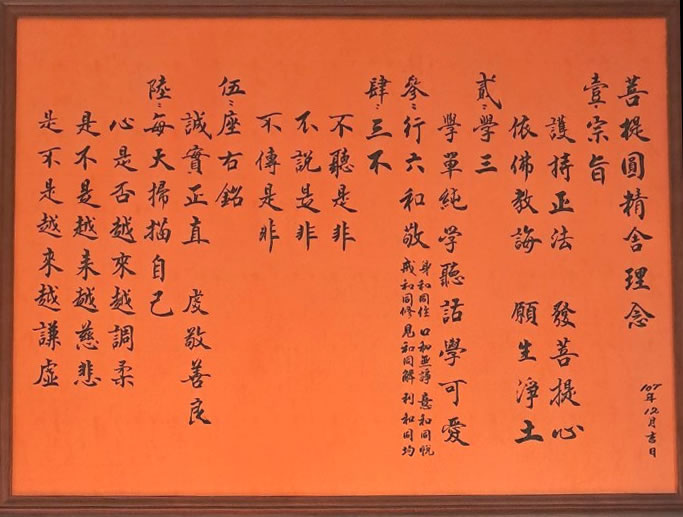 菩提圓精舍理念
年12月吉日
壹:宗旨
護持正法 發菩提心
依佛教誨 願生淨土
貳:學三
學單純學聽話學可愛
參:行六和敬
身和同住 口和無諍 意和同悅
戒和同修 見和同解 利和同均
肆:三不
不聽是非
不說是非
不傳是非
伍:座右銘
誠實正直 虔敬善良
陸:每天掃描自己
心是否越來越調柔
是不是越来越慈悲
是不是越來越謙虛